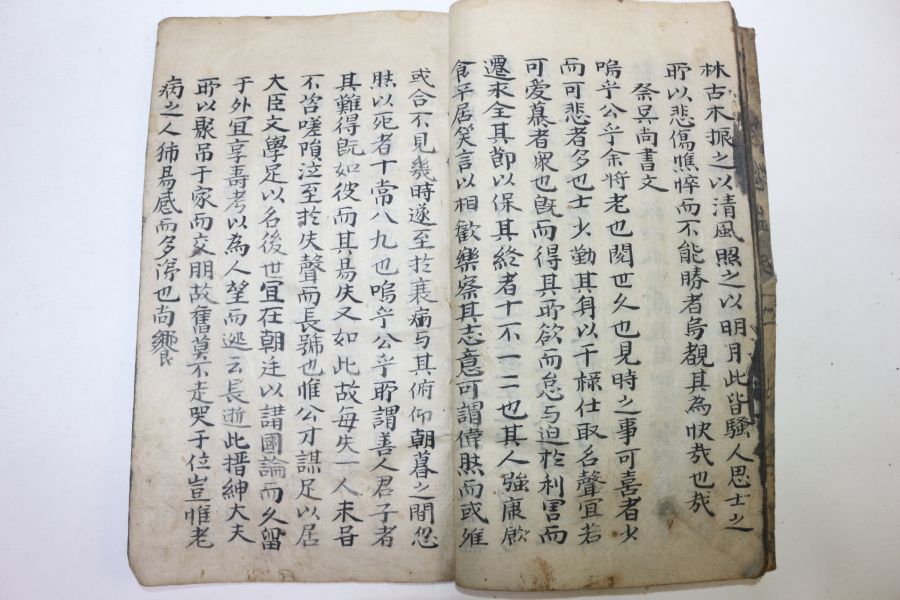 林古木振之以清風照之以明月此皆騷人思士之
所以悲傷憔悴而不能勝者烏覩其為快哉也哉
祭吳尚書文
嗚乎公乎余將老也閱世久也見時之事可喜者少
而可悲者多也士少勤其身以干祿仕取名聲宜若
可愛慕者衆也旣而得其所欲而怠与迫於利害而
遷求全其節以保其終者十不一二也其人強康飫
食平居笑言以相歡樂察其志意可謂偉然而或離
或合不見幾時遂至於衰病与其俯仰朝暮之間忽
然以死者十常八九也嗚乎公乎所謂善人君子者
其難得旣如彼而其易失又如此故每失一人未甞
不咨嗟隕泣至於失聲而長號也惟公才謀足以居
大臣文學足以名後世宜在朝廷以講國論而久留
于外宜享壽考以為人望而遽云長逝此搢紳大夫
所以聚吊于家而交朋故舊莫不走哭于位豈惟老
病之人獨易感而多涕也尚饗